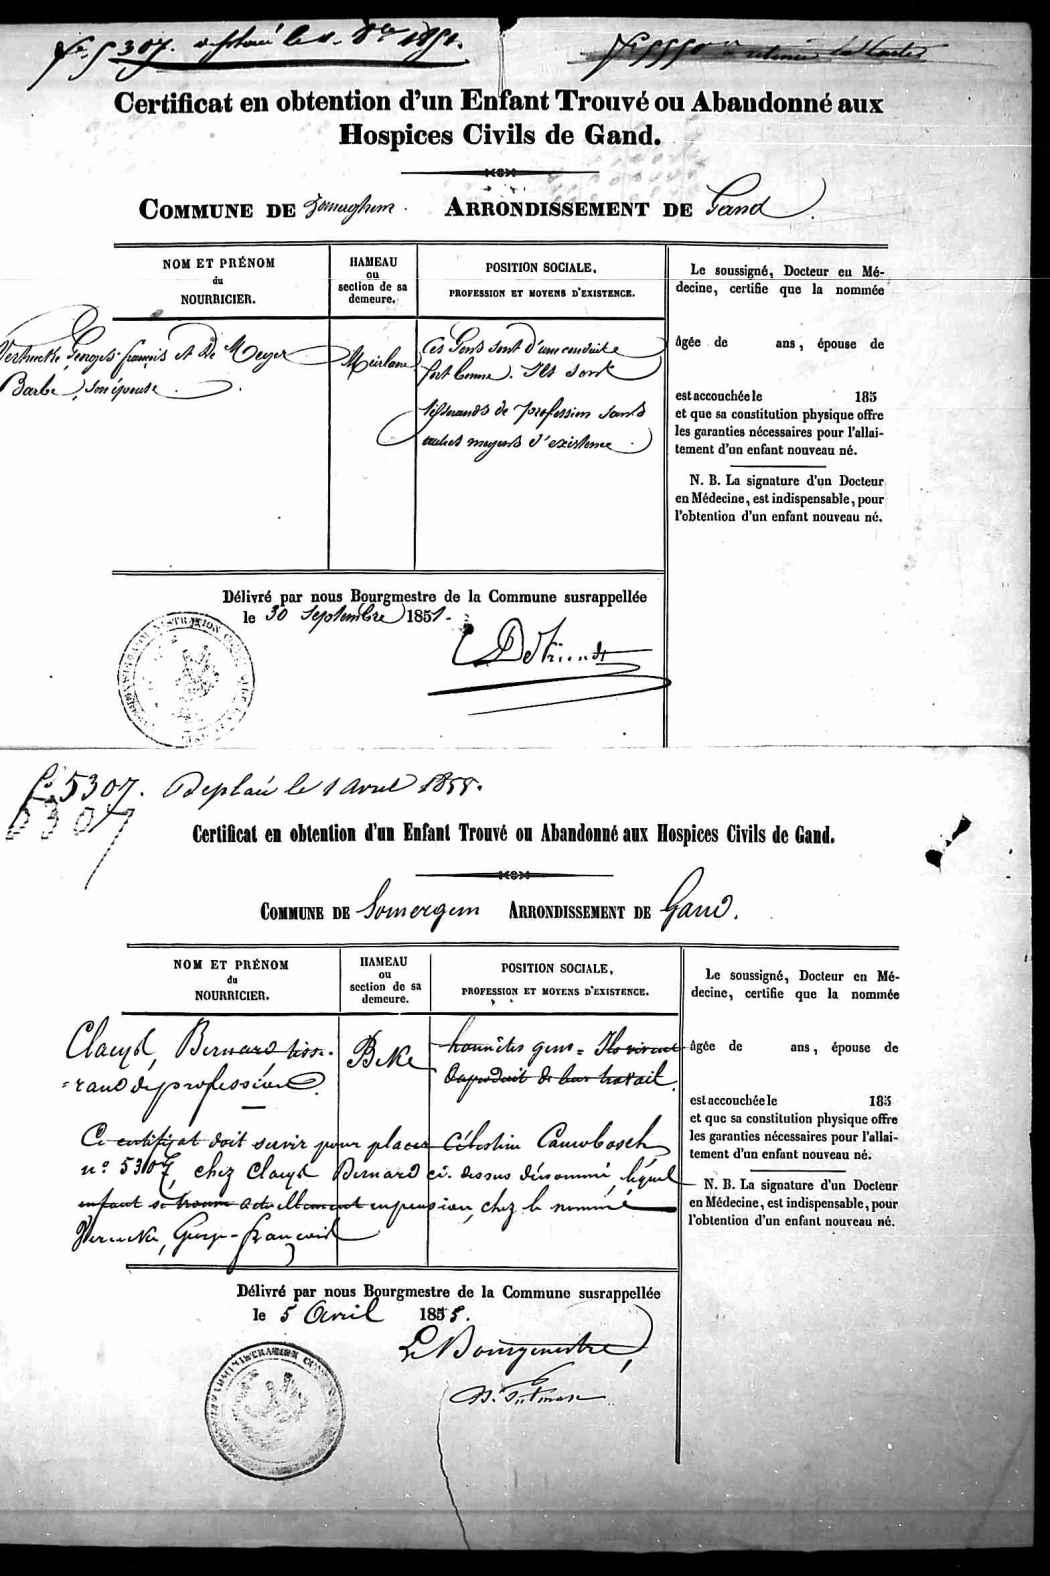 fo 5307. déplacé le 1851.
Certificat en obtention d'un Enfant Trouvé ou Abandonné aux
Hospices Civils de Gand.
COMMUNE DE Somerghem. ARRONDISSEMENT DE Gand.
NOM ET PRÉNOM
du
NOURRICIER.
HAMEAU
ou
section de sa
demeure.
POSITION SOCIALE,
PROFESSION ET MOYENS D'EXISTENCE.
Georges françois et De Meyer
Barbe, son épouse.
Meirlaere
Ces Gens sont d'une conduite
fort bonne. Ils sont
tisserands de profession sans
autres moyens d'existence.
Le soussigné, Docteur en Mé-
decine, certifie que la nommée
âgée de ans, épouse de
est accouchée le 185
et que sa constitution physique offre
les garanties nécessaires pour l'allai-
tement d'un enfant nouveau né.
N. B. La signature d'un Docteur
en Médecine, est indispensable, pour
l'obtention d'un enfant nouveau né.
Délivré par nous Bourgmestre de la Commune susrappellée
le 30 Septembre 1851.
fo 5307. Déplacé le 1 avril 1855.
5307
Certificat en obtention d'un Enfant Trouvé ou Abandonné aux Hospices Civils de Gand.
COMMUNE DE Somergem ARRONDISSEMENT DE Gand.
NOM ET PRÉNOM
du
NOURRICIER.
HAMEAU
ou
section de sa
demeure.
POSITION SOCIALE,
PROFESSION ET MOYENS D'EXISTENCE.
Claeys, Bernard tisse-
rand de profession.
Beke
honnêtes gens = Ils vivent
du produit de leur travail.
Ce certificat doit servir pour placer Célestin Cauwbosch,
n° 5307, chez Claeys Bernard ci-dessus dénommé, lequel
enfant se trouve actuellement en pension, chez le nommé
George-françois
Le soussigné, Docteur en Mé-
decine, certifie que la nommée
âgée de ans, épouse de
est accouchée le 185
et que sa constitution physique offre
les garanties nécessaires pour l'allai-
tement d'un enfant nouveau né.
N. B. La signature d'un Docteur
en Médecine, est indispensable, pour
l'obtention d'un enfant nouveau né.
Délivré par nous Bourgmestre de la Commune susrappellée
le 5 Avril 1855.
Le Bourgmestre,